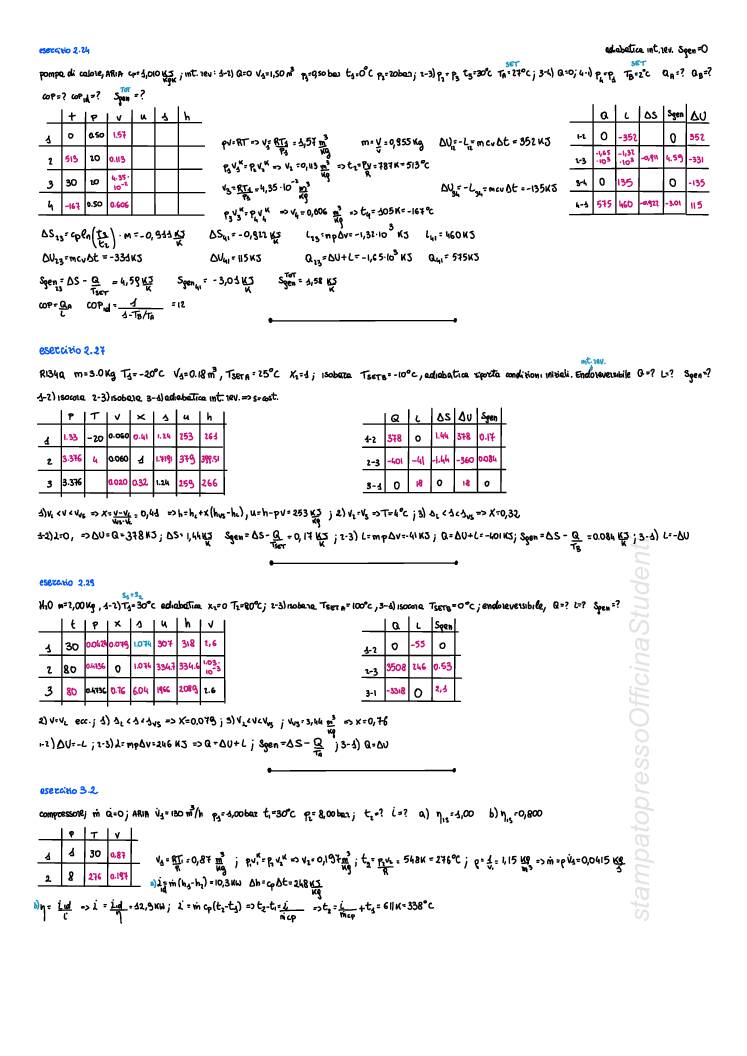 esercizio 2.24
adiabatica int. rev. Sgen=0
pompa di calore, ARIA cp=1,010 KJ/KgK ; int. rev: 1-2) Q=0 V1=1,50 m³ p1=0,50 bar t1=0°C p2=20bar; 2-3) p2=p3 t3=30°C TA SET=27°C; 3-4) Q=0; 4-1) p4=p1 TB SET=2°C QA=? QB=?
COP=? COPid=? Sgen TOT=?
t p v u s h
1 0 0.50 1.57
2 513 20 0.113
3 30 20 4.35·10⁻²
4 -167 0.50 0.606
Q L ΔS Sgen ΔU
1-2 0 -352 0 352
2-3 -1,65·10³ -1,32·10³ -0,911 4.59 -331
3-4 0 135 0 -135
4-1 575 460 -0,922 -3.01 115
pv=RT => v1=RT1/P1=1,57 m³/Kg m=V/v=0,955Kg ΔU12=-L12=mcvΔt=352KJ
p1v1^K=p2v2^K => v2=0,113 m³/Kg => t2=Pv/R=787K=513°C
v3=RT3/P3=4,35·10⁻² m³/Kg ΔU34=-L34=mcvΔt=-135KJ
p3v3^K=p4v4^K => v4=0,606 m³/Kg => t4=105K=-167°C
ΔS23=cpln(t3/t2)·m=-0,911 KJ/K ΔS41=-0,922 KJ/K L23=mpΔv=-1,32·10³ KJ L41=460KJ
ΔU23=mcvΔt=-331KJ ΔU41=115KJ Q23=ΔU+L=-1,65·10³ KJ Q41=575KJ
Sgen23=ΔS-Q/TSET=4,59 KJ/K Sgen41=-3,01 KJ/K Sgen TOT=1,58 KJ/K
COP=QA/L COPid=1/(1-TB/TA)=12
esercizio 2.27
R134a m=3.0Kg T1=-20°C V1=0.18m³, TSETA=25°C X2=1; isobara TSETB=-10°C, adiabatica int. rev. riporta condizioni iniziali. Endoreversibile Q=? L=? Sgen=?
1-2) isocora 2-3) isobara 3-1) adiabatica int. rev. => s=cost.
P T v x s u h
1 1.33 -20 0.060 0.41 1.24 253 261
2 3.376 4 0.060 1 1.7191 379 399.51
3 3.376 0.020 0.32 1.24 259 266
Q L ΔS ΔU Sgen
1-2 378 0 1.44 378 0.17
2-3 -401 -41 -1.44 -360 0.084
3-1 0 18 0 18 0
1) vL<v<vvs => x=(v-vL)/(vvs-vL)=0,41 => h=hL+x(hvs-hL), u=h-pv=253 KJ/Kg ; 2) v2=vs => T=4°C ; 3) sL<s<svs => X=0,32
1-2) L=0, => ΔU=Q=378KJ ; ΔS=1,44 KJ/K Sgen=ΔS-Q/TSET=0,17 KJ/K ; 2-3) L=mpΔv=-41KJ ; Q=ΔU+L=-401KJ; Sgen=ΔS-Q/TB=0.084 KJ/K ; 3-1) L=-ΔU
esercizio 2.29
H2O m=2,00Kg, 1-2) T1=30°C adiabatica S1=S2 x2=0 T2=80°C; 2-3) isobara TSETA=100°C, 3-1) isocora TSETB=0°C; endoreversibile, Q=? L=? Sgen=?
t p x s u h v
1 30 0.0424 0.079 1.074 307 318 2,6
2 80 0.4736 0 1.074 334.7 334.6 1.03·10⁻³
3 80 0.4736 0.76 6.04 1966 2089 2.6
Q L Sgen
1-2 0 -55 0
2-3 3508 246 0.53
3-1 -3318 0 2,1
2) v=vL ecc.; 1) sL<s<svs => X=0,079 ; 3) vL<v<vvs ; vvs=3,44 m³/Kg => x=0,76
1-2) ΔU=-L ; 2-3) L=mpΔv=246KJ => Q=ΔU+L ; Sgen=ΔS-Q/TA ; 3-1) Q=ΔU
esercizio 3.2
compressore; ṁ Q̇=0; ARIA V̇1=130 m³/h p1=1,00bar t1=30°C p2=8,00bar; t2=? L̇=? a) ηis=1,00 b) ηis=0,800
P T v
1 1 30 0.87
2 8 276 0.197
v1=RT1/P1=0,87 m³/Kg ; p1v1^K=p2v2^K => v2=0,197 m³/Kg ; t2=P2v2/R=548K=276°C ; ρ=1/v1=1,15 Kg/m³ => ṁ=ρV̇1=0,0415 Kg/s
a) L̇id=ṁ(h1-h2)=10,3KW Δh=cpΔt=248 KJ/Kg
b) η=L̇id/L̇ => L̇=L̇id/η=12,9KW; L̇=ṁcp(t2-t1) => t2-t1=L̇/ṁcp => t2=L̇/ṁcp+t1=611K=338°C
stampatopressoOfficinaStudent